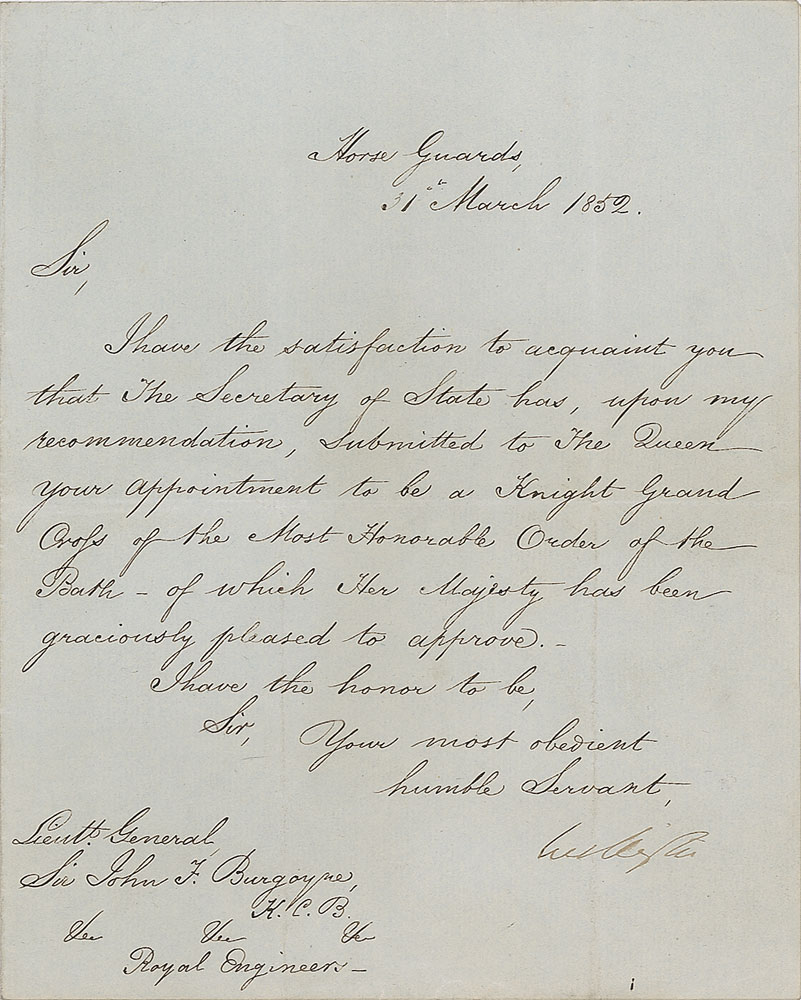 Horse Guards,
31st March 1852.
Sir,
I have the satisfaction to acquaint you
that The Secretary of State has, upon my
recommendation, submitted to The Queen
your appointment to be a Knight Grand
Cross of the Most Honorable Order of the
Bath - of which Her Majesty has been
graciously pleased to approve. -
I have the honor to be,
Sir, Your most obedient
humble Servant,
Wellington
Lieutt. General,
Sir John F. Burgoyne,
K.C.B.
Royal Engineers -